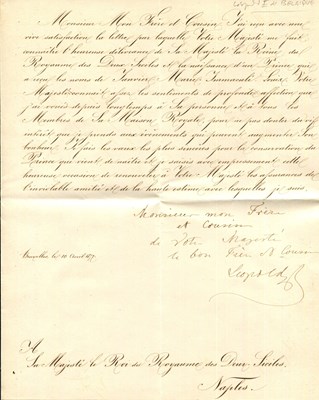 Monsieur Mon Frère et Cousin. J'ai reçu avec une
vive satisfaction la lettre par laquelle Votre Majesté me fait
connaître l'heureuse délivrance de Sa Majesté la Reine du
Royaume des Deux Siciles et la naissance d'un Prince qui
a reçu les noms de Janvier Marie Immaculé Louis. Votre
Majesté connait assez les sentiments de profonde affection que
j'ai voués depuis longtemps à Sa personne et à tous les
Membres de Sa Maison Royale, pour ne pas douter du vif
intérêt que je prends aux évènements qui peuvent augmenter Son
bonheur. Je fais les vœux les plus sincères pour la conservation du
Prince qui vient de naître et je saisis avec empressement cette
heureuse occasion de renouveler à Votre Majesté les assurances de
l'inviolable amitié et de la haute estime avec lesquelles je suis,
Monsieur mon Frère
et Cousin
de Votre Majesté
le bon Frère et Cousin
Leopold
Bruxelles, le
A
Sa Majesté le Roi du Royaume des Deux-Siciles,
Naples.